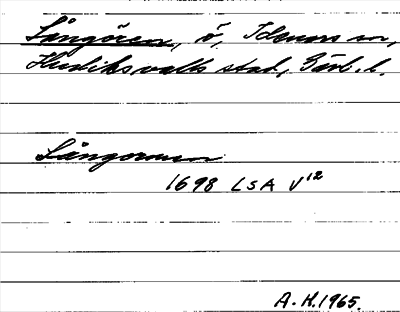 Långören, ö, Idenors sn,
Hudiksvalls stad, Gävl. l.
Långormen
1698 LSA V12
A. H. 1965.